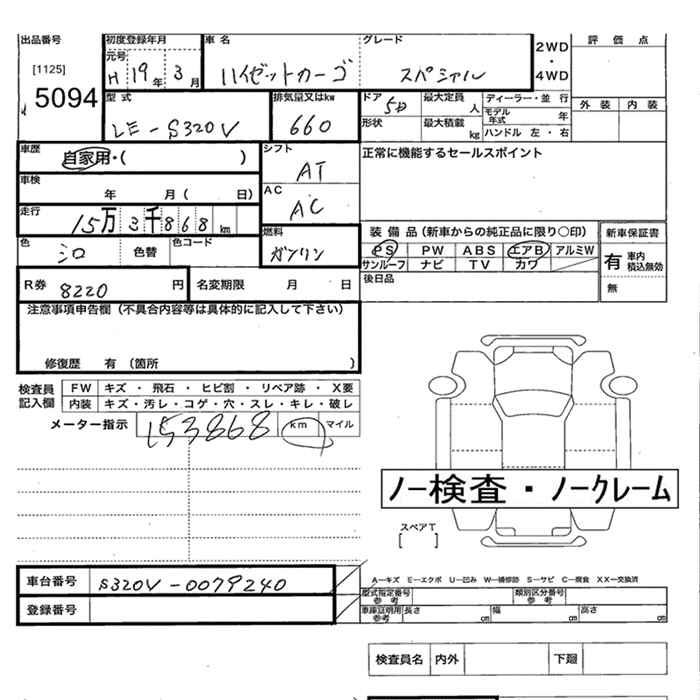 出品番号 初度登録年月 車名 グレード 2WD・4WD 評価点
[1125] 元号 H 19年 3月 ハイゼットカーゴ スペシャル
5094 型式 排気量又はkw ドア 5D 最大定員 人 ディーラー・並行 外装 内装
LE-S320V 660 形状 最大積載 kg モデル年式 年
ハンドル 左・右
車歴 自家用・( ) シフト AT 正常に機能するセールスポイント
車検 年 月( 日) AC AC
走行 15万3千868 km 燃料 ガソリン 装備品(新車からの純正品に限り○印) 新車保証書
色 シロ 色替 色コード PS PW ABS エアB アルミW 有 車内積込無効
サンルーフ ナビ TV カワ
R券 8220 円 名変期限 月 日 後日品 無
注意事項申告欄(不具合内容等は具体的に記入して下さい)
修復歴 有(箇所 )
検査員記入欄 FW キズ・飛石・ヒビ割・リペア跡・X要
内装 キズ・汚レ・コゲ・穴・スレ・キレ・破レ
メーター指示 153868 km マイル
ノー検査・ノークレーム
スペアT
[ ]
車台番号 S320V-0079240 A―キズ E―エクボ U―凹み W―補修跡 S―サビ C―腐食 XX―交換済
登録番号 型式指定番号参考 類別区分番号参考
車庫証明用参考 長さ cm 幅 cm 高さ cm
検査員名 内外 下廻